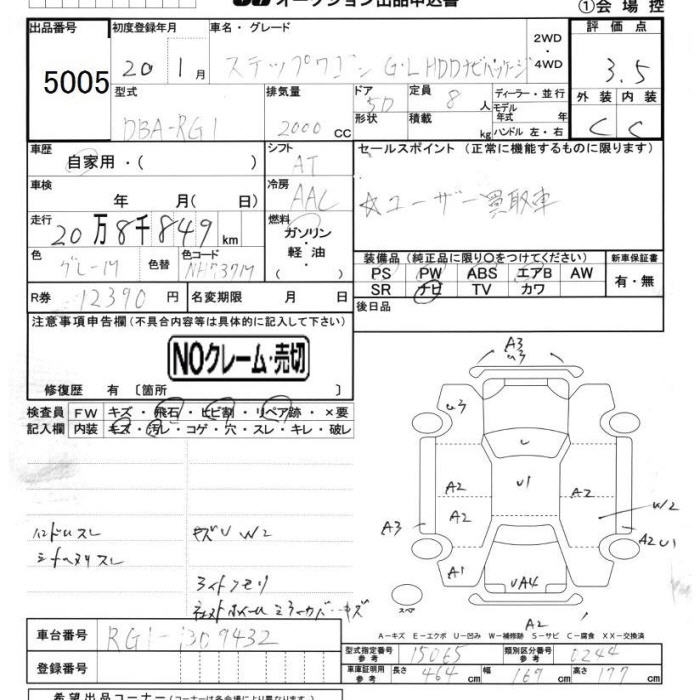 オークション出品申込書
①会場控
出品番号
5005
初度登録年月
20 1月
車名・グレード
ステップワゴン G・L HDDナビパッケージ
2WD・4WD
評価点
3.5
外装 内装
C C
型式
DBA-RG1
排気量
2000 cc
ドア
5D
形状
定員
8人
積載
kg
ディーラー・並行
モデル年式 年
ハンドル 左・右
車歴
自家用・( )
シフト
AT
セールスポイント (正常に機能するものに限ります)
☆ユーザー買取車
車検
年 月( 日)
冷房
AAC
走行
20万8千849km
燃料
ガソリン・軽油・( )
色
グレーM
色替
色コード
NH737M
装備品 (純正品に限り○をつけてください)
PS PW ABS エアB AW
SR ナビ TV カワ
新車保証書
有・無
R券 12390円
名変期限 月 日
後日品
注意事項申告欄 (不具合内容等は具体的に記入して下さい)
NOクレーム・売切
修復歴 有 [箇所 ]
検査員記入欄
FW キズ・飛石・ヒビ割・リペア跡・×要
内装 キズ・汚レ・コゲ・穴・スレ・キレ・破レ
ハンドルスレ
キズU W2
ライトクモリ
A3
U3
U3
U1
A2
A2
A2
W2
A3
A2U1
A1
UA4
A2
スペア
A-キズ E-エクボ U-凹み W-補修跡 S-サビ C-腐食 XX-交換済
車台番号
RG1-1309432
登録番号
型式指定番号 参考 15065
類別区分番号 参考 0244
車庫証明用 参考 長さ 464cm 幅 169cm 高さ 177cm
希望出品コーナー (コーナーは各会場により異なります)